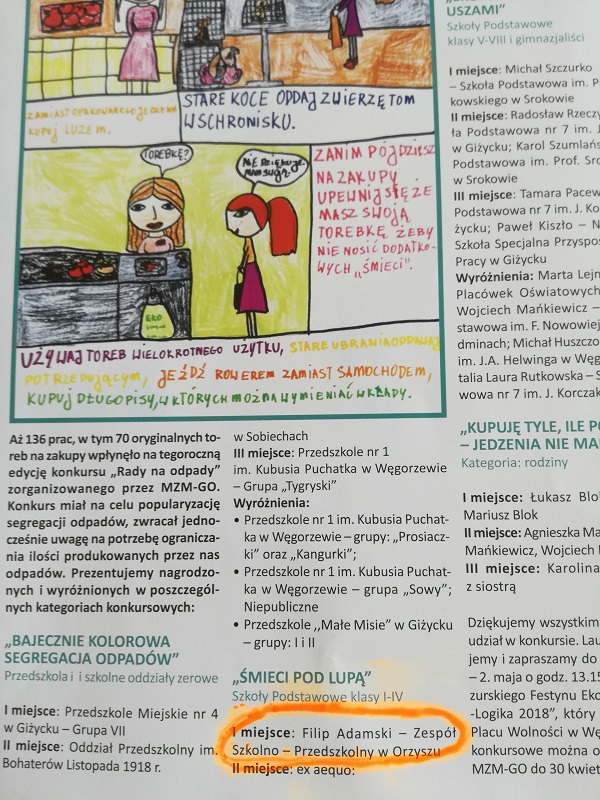 ZAMIAST OPAKOWANEGO JEDZENIA
KUPUJ LUZEM.
STARE KOCE ODDAJ ZWIERZĘTOM
W SCHRONISKU.
TOREBKĘ?
NIE DZIĘKUJĘ
MAM SWOJĄ.
EKO
ZANIM PÓJDZIESZ
NA ZAKUPY
UPEWNIJ SIĘ ŻE
MASZ SWOJĄ
TOREBKĘ ŻEBY
NIE NOSIĆ DODATKO-
WYCH „ŚMIECI".
UŻYWAJ TOREB WIELOKROTNEGO UŻYTKU, STARE UBRANIA ODDAWAJ
POTRZEPUJĄCYM, JEŹDŹ ROWEREM ZAMIAST SAMOCHODEM,
KUPUJ DŁUGOPISY, W KTÓRYCH MOŻNA WYMIENIAĆ WKŁADY.
Aż 136 prac, w tym 70 oryginalnych to-
reb na zakupy wpłynęło na tegoroczną
edycję konkursu „Rady na odpady"
zorganizowanego przez MZM-GO.
Konkurs miał na celu popularyzację
segregacji odpadów, zwracał jedno-
cześnie uwagę na potrzebę ogranicza-
nia ilości produkowanych przez nas
odpadów. Prezentujemy nagrodzo-
nych i wyróżnionych w poszczegól-
nych kategoriach konkursowych:
„BAJECZNIE KOLOROWA
SEGREGACJA ODPADÓW"
Przedszkola i i szkolne oddziały zerowe
I miejsce: Przedszkole Miejskie nr 4
w Giżycku – Grupa VII
II miejsce: Oddział Przedszkolny im.
Bohaterów Listopada 1918 r.
w Sobiechach
III miejsce: Przedszkole nr 1
im. Kubusia Puchatka w Węgorzewie
– Grupa „Tygryski"
Wyróżnienia:
• Przedszkole nr 1 im. Kubusia Puchat-
ka w Węgorzewie – grupy: „Prosiacz-
ki" oraz „Kangurki";
• Przedszkole nr 1 im. Kubusia Puchat-
ka w Węgorzewie – grupa „Sowy";
Niepubliczne
• Przedszkole „Małe Misie" w Giżycku
– grupy: I i II
„ŚMIECI POD LUPĄ"
Szkoły Podstawowe klasy I-IV
I miejsce: Filip Adamski – Zespół
Szkolno – Przedszkolny w Orzyszu
II miejsce: ex aequo:
USZAMI"
Szkoły Podstawowe
klasy V-VIII i gimnazjaliści
I miejsce: Michał Szczurko
– Szkoła Podstawowa im. P
kowskiego w Srokowie
II miejsce: Radosław Rzeczy
ła Podstawowa nr 7 im. J
w Giżycku; Karol Szumlańs
Podstawowa im. Prof. Src
w Srokowie
III miejsce: Tamara Pacew
Podstawowa nr 7 im. J. Ko
życku; Paweł Kiszło – N
Szkoła Specjalna Przyspos
Pracy w Giżycku
Wyróżnienia: Marta Lejn
Placówek Oświatowych
Wojciech Mańkiewicz –
stawowa im. F. Nowowiej
dminach; Michał Huszczo
im. J.A. Helwinga w Węg
talia Laura Rutkowska – S
wowa nr 7 im. J. Korczak
„KUPUJĘ TYLE, ILE PO
– JEDZENIA NIE MA
Kategoria: rodziny
I miejsce: Łukasz Blo
Mariusz Blok
II miejsce: Agnieszka Ma
Mańkiewicz, Wojciech
III miejsce: Karolina
z siostrą
Dziękujemy wszystkim
udział w konkursie. Lau
jemy i zapraszamy do
– 2. maja o godz. 13.15
zurskiego Festynu Eko
-Logika 2018", który
Placu Wolności w Wę
konkursowe można o
MZM-GO do 30 kwiet